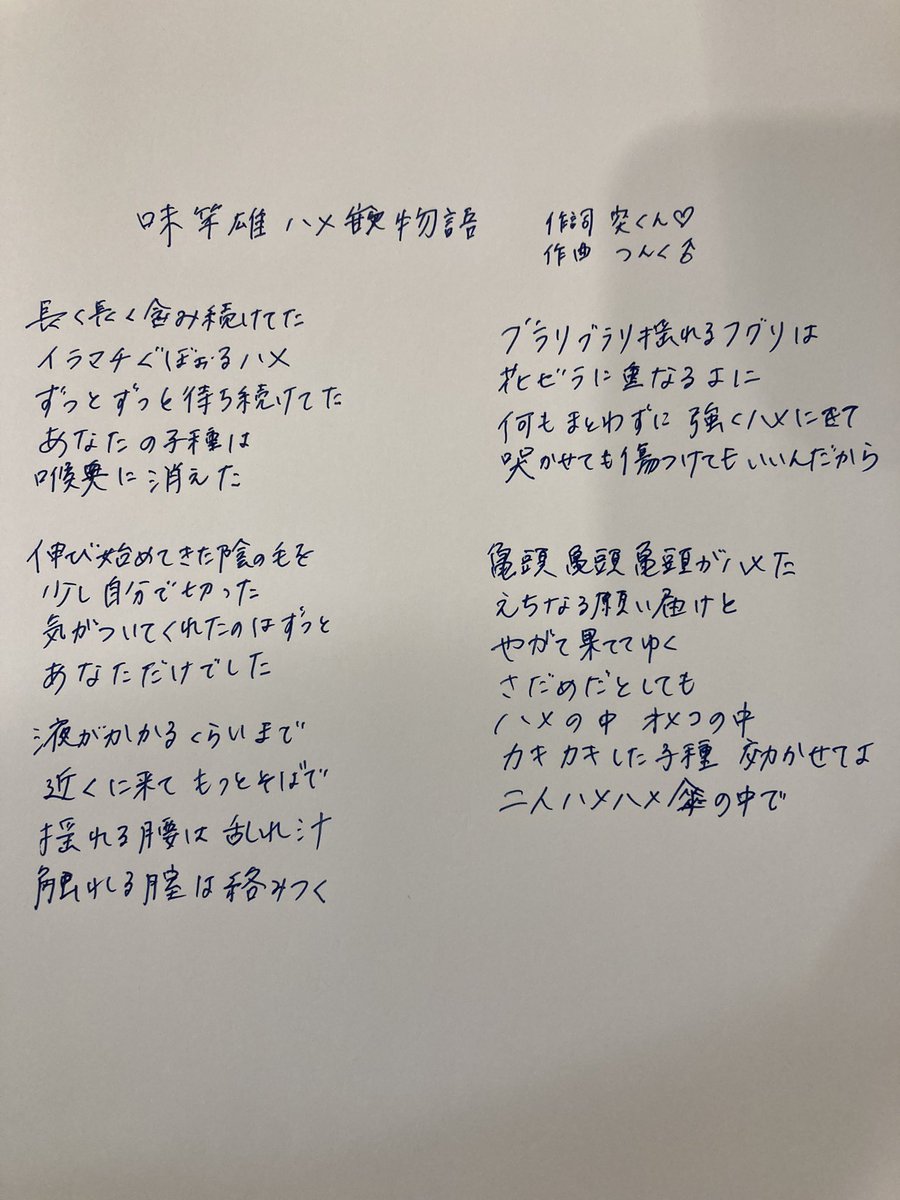 味竿雄ハメ鞭物語
作詞 突くん♡
作曲 つんく♂
長く長く含み続けてた
イラマチぐぼぉるハメ
ずっとずっと待ち続けてた
あなたの子種は
喉奥に消えた
伸び始めてきた陰の毛を
少し自分で切った
気がついてくれたのはずっと
あなただけでした
液がかかるくらいまで
近くに来て もっとそばで
揺れる腰は乱れ汁
触れる膣は絡みつく
ブラリブラリ揺れるフグリは
花ビラに重なるよに
何もまとわずに 強くハメにきて
哭かせても傷つけてもいいんだから
亀頭 亀頭 亀頭がハメた
えちなる願い届けと
やがて果ててゆく
さだめだとしても
ハメの中 オメコの中
カキカキした子種 効かせてよ
二人ハメハメ傘の中で